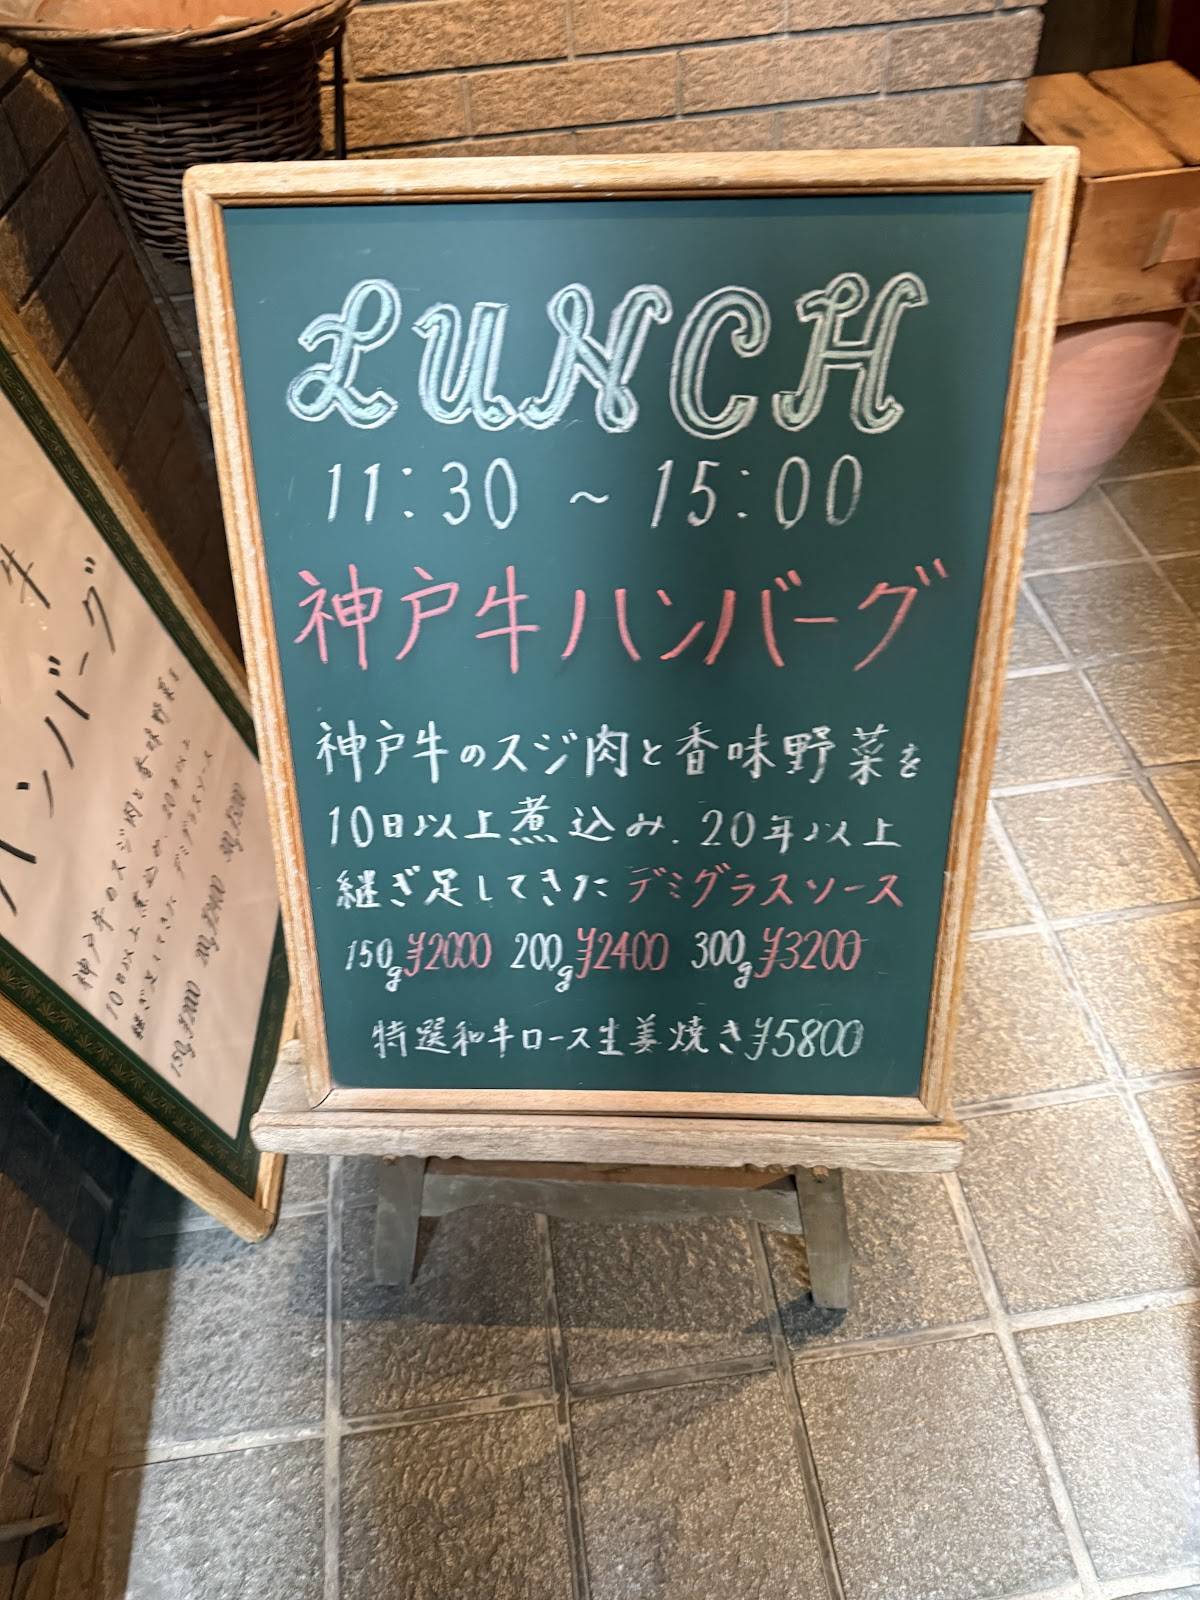 LUNCH
11:30 ~ 15:00
神戸牛ハンバーグ
神戸牛のスジ肉と香味野菜を
10日以上煮込み、20年以上
継ぎ足してきたデミグラスソース
150g¥2000 200g¥2400 300g¥3200
特選和牛ロース生姜焼き¥5800
牛
ンバーグ
神戸牛のスジ肉と香味野菜を
10日以上煮込み、20年以上
継ぎ足してきたデミグラスソース
150g¥2000 200g¥2400 300g¥3200